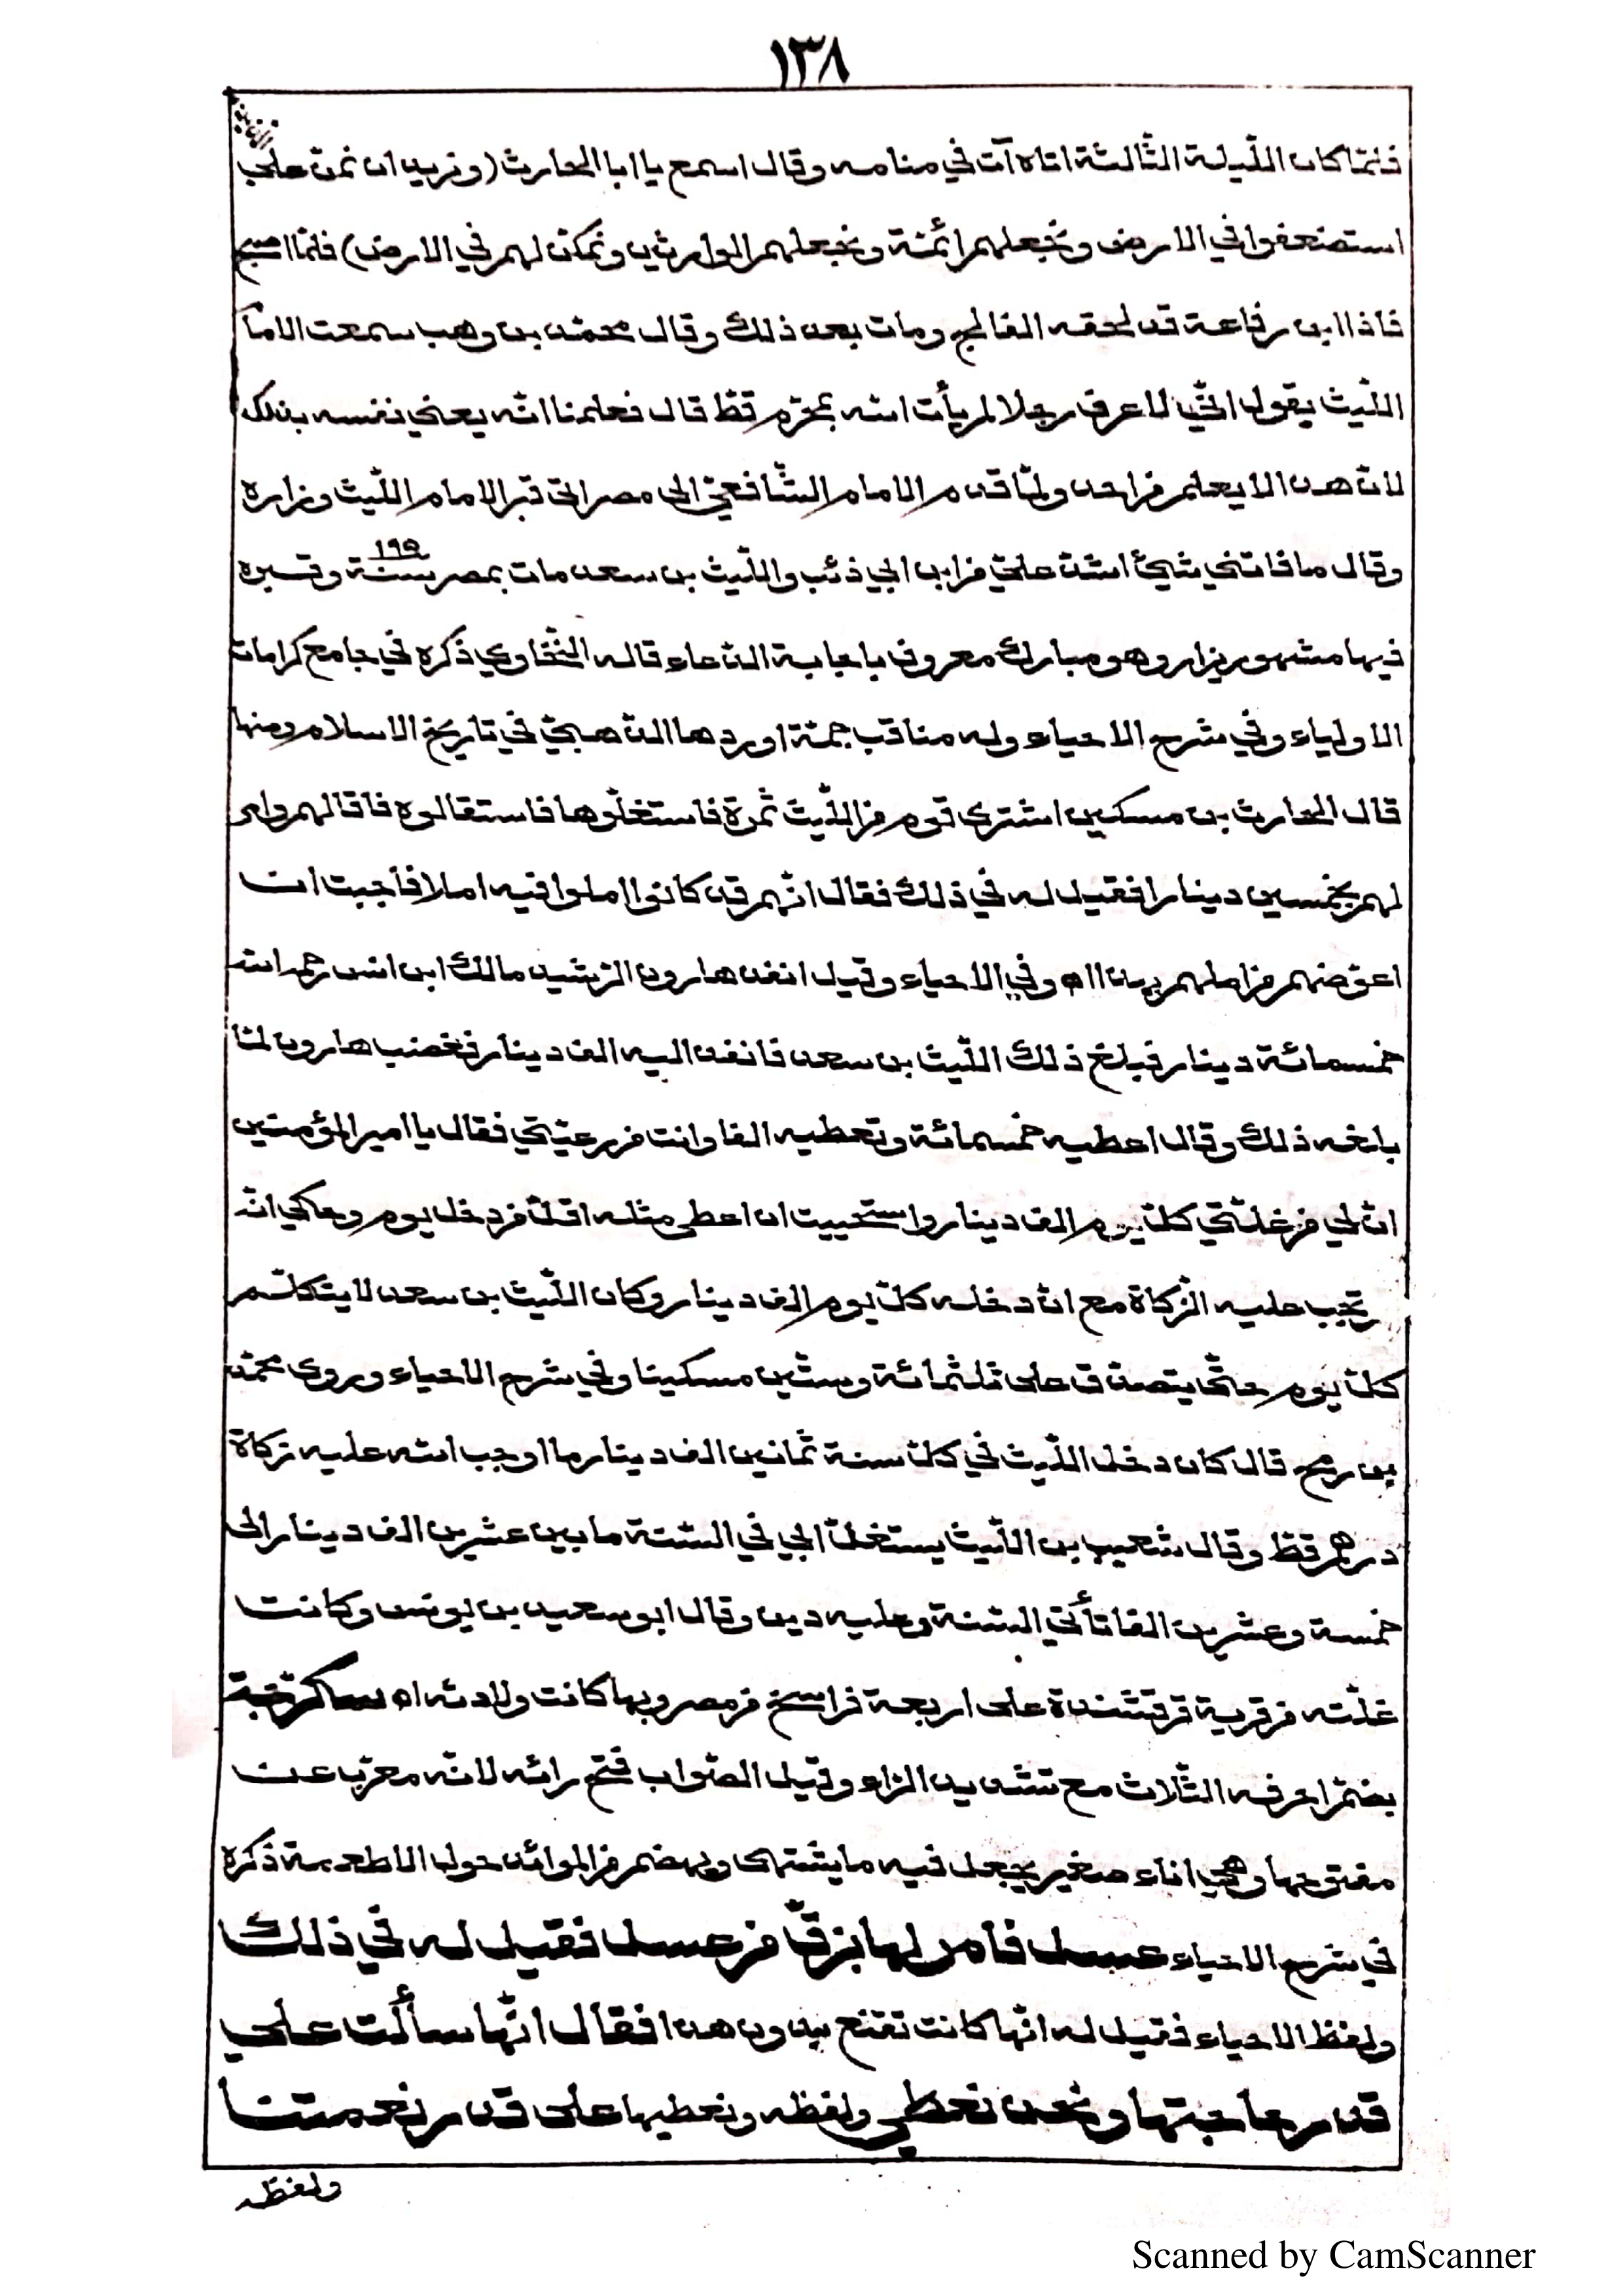 ١٣٨
فلمّا كان اللّيلة الثّالثة اتاه آت في منامه وقال اسمع يا ابا الحارث (ونريد ان نمنّ على الذين
استضعفوا في الارض ونجعلهم ائمّة ونجعلهم الوارثين ونمكّن لهم في الارض) فلمّا اصبح
فاذا ابن رفاعة قد لحقه الفالج ومات بعد ذلك وقال محمّد بن وهب سمعت الاما
اللّيث يقول انّي لاعرف رجلا لم يأت الله بمحرّم قطّ قال فعلمنا انّه يعني نفسه بذلك
لانّ هذا لا يعلم من احد ولمّا قدم الامام الشّافعيّ الى مصر اتى قبر الامام اللّيث وزاره
وقال ما فاتني شيئ اشدّ عليّ من ابن ابي ذئب واللّيث بن سعد مات بمصر سنة ١٩٥ وقبره
فيها مشهور يزار وهو مبارك معروف باجابة الدّعاء قاله السّخاوي ذكره في جامع كرامات
الاولياء وفي شرح الاحياء وله مناقب جمّة اوردها الذّهبيّ في تاريخ الاسلام ومنها
قال الحارث بن مسكين اشترى قوم من اللّيث ثمرة فاستغلّوها فاستقالوه فاقالهم وامر
لهم بخمسين دينارا فقيل له في ذلك فقال انّهم قد كانوا املوا فيه املا فأحببت ان
اعوّضهم من املهم بهذا اه وفي الاحياء وقيل انفذ هارون الرّشيد مالك ابن انس رحمه الله
خمسمائة دينار فبلغ ذلك اللّيث بن سعد فانفذ اليه الف دينار فغضب هارون لمّا
بلغه ذلك وقال اعطيه خمسمائة وتعطيه الفا وانت من رعيّتي فقال يا امير المؤمنين
انّ لي من غلّتي كلّ يوم الف دينار واستحييت ان اعطي مثله اقلّ من دخل يوم وحكي انّه
تجب عليه الزّكاة مع انّ دخله كلّ يوم الف دينار وكان اللّيث بن سعد لا يتكلّم
كلّ يوم حتّى يتصدّق على ثلثمائة وستّين مسكينا وفي شرح الاحياء وروى محمّد
بن رمح قال كان دخل اللّيث في كلّ سنة ثمانين الف دينار ما اوجب الله عليه زكاة
درهم قطّ وقال شعيب بن اللّيث يستغلّ ابي في السّنة ما بين عشرين الف دينار الى
خمسة وعشرين الفا تأتي السّنة وعليه دين وقال ابو سعيد بن يونس وكانت
غلّته من قرية قرقشندة على اربعة فراسخ من مصر وبها كانت ولادته اه سكرّجة
بضمّ احرفه الثّلاث مع تشديد الرّاء وقيل الصّواب فتح رائه لانّه معرّب عن
مفتوحها وهي اناء صغير يجعل فيه ما يشتهى ويهضم من الموائد حول الاطعمة ذكره
في شرح الاحياء عسل فأمر لها بزقّ من عسل فقيل له في ذلك
ولفظ الاحياء فقيل له انّها كانت تقنع بدون هذا فقال انّها سألت على
قدر حاجتها ونحن نعطي ولفظه ونعطيها على قدر نعمتنا
ولفظه
Scanned by CamScanner